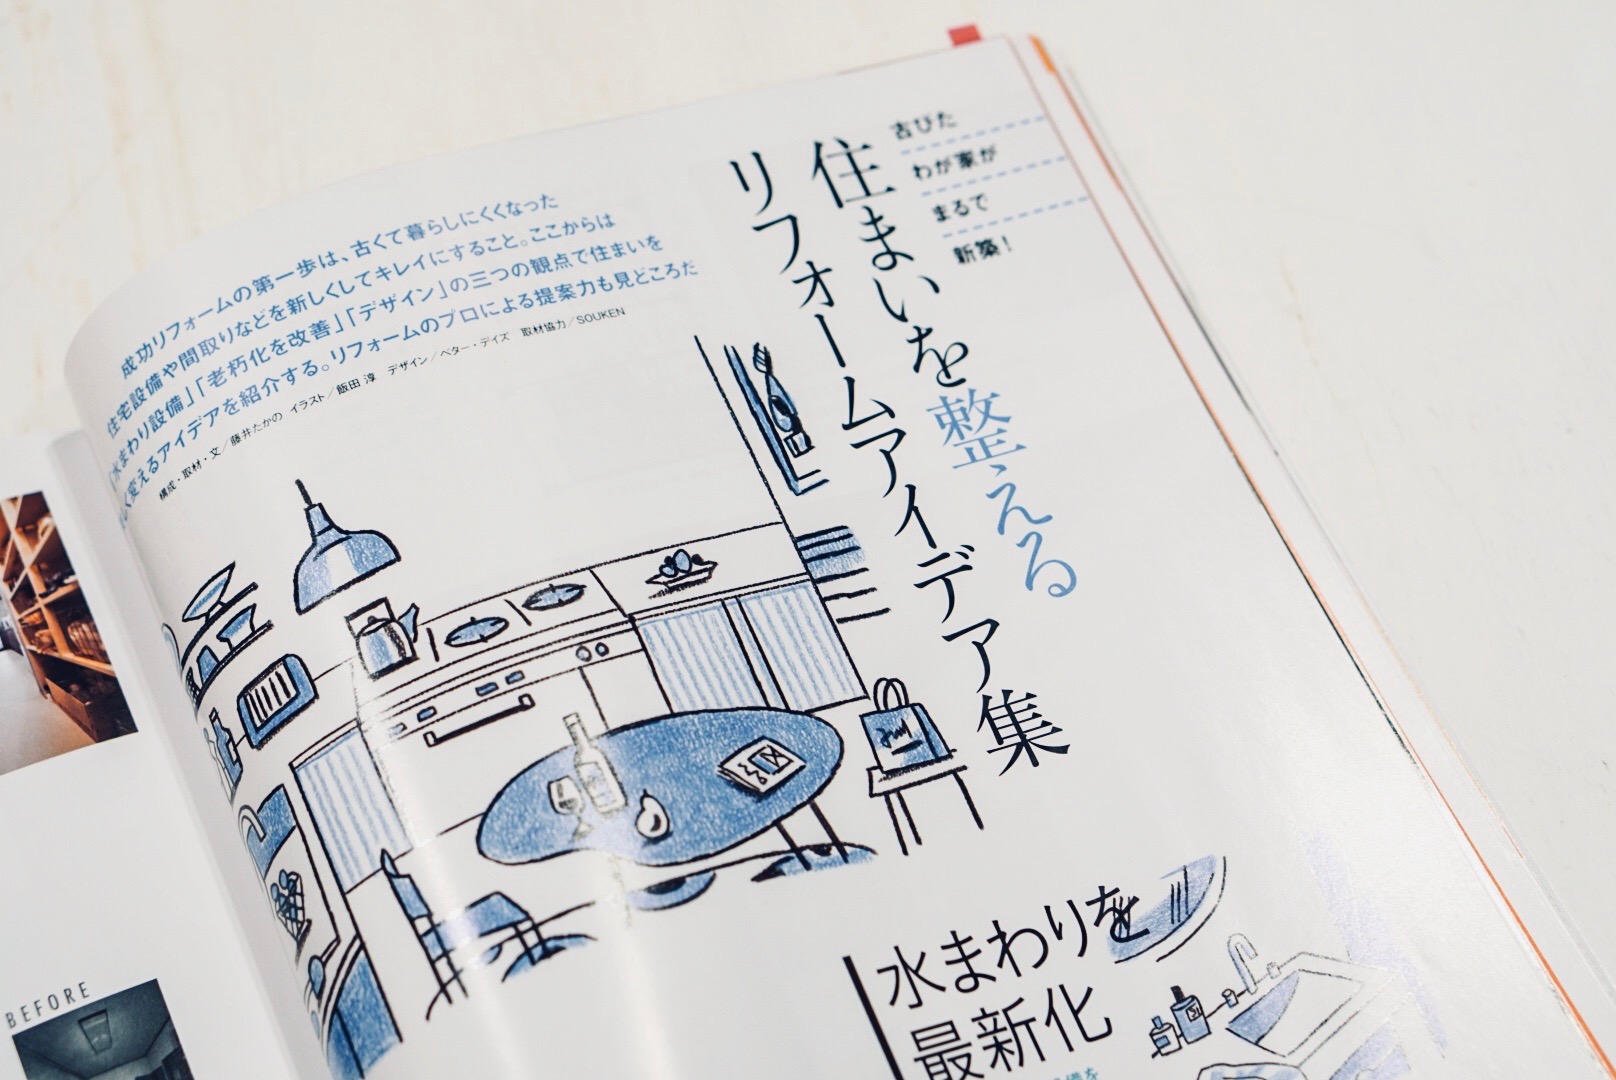 古びた
わが家が
まるで
新築！
住まいを整える
リフォームアイデア集
成功リフォームの第一歩は、古くて暮らしにくくなった
住宅設備や間取りなどを新しくしてキレイにすること。ここからは
「水まわり設備」「老朽化を改善」「デザイン」の三つの観点で住まいを
く変えるアイデアを紹介する。リフォームのプロによる提案力も見どころだ
構成・取材・文／藤井たかの イラスト／飯田 淳 デザイン／ベター・デイズ 取材協力／SOUKEN
水まわりを
最新化
BEFORE